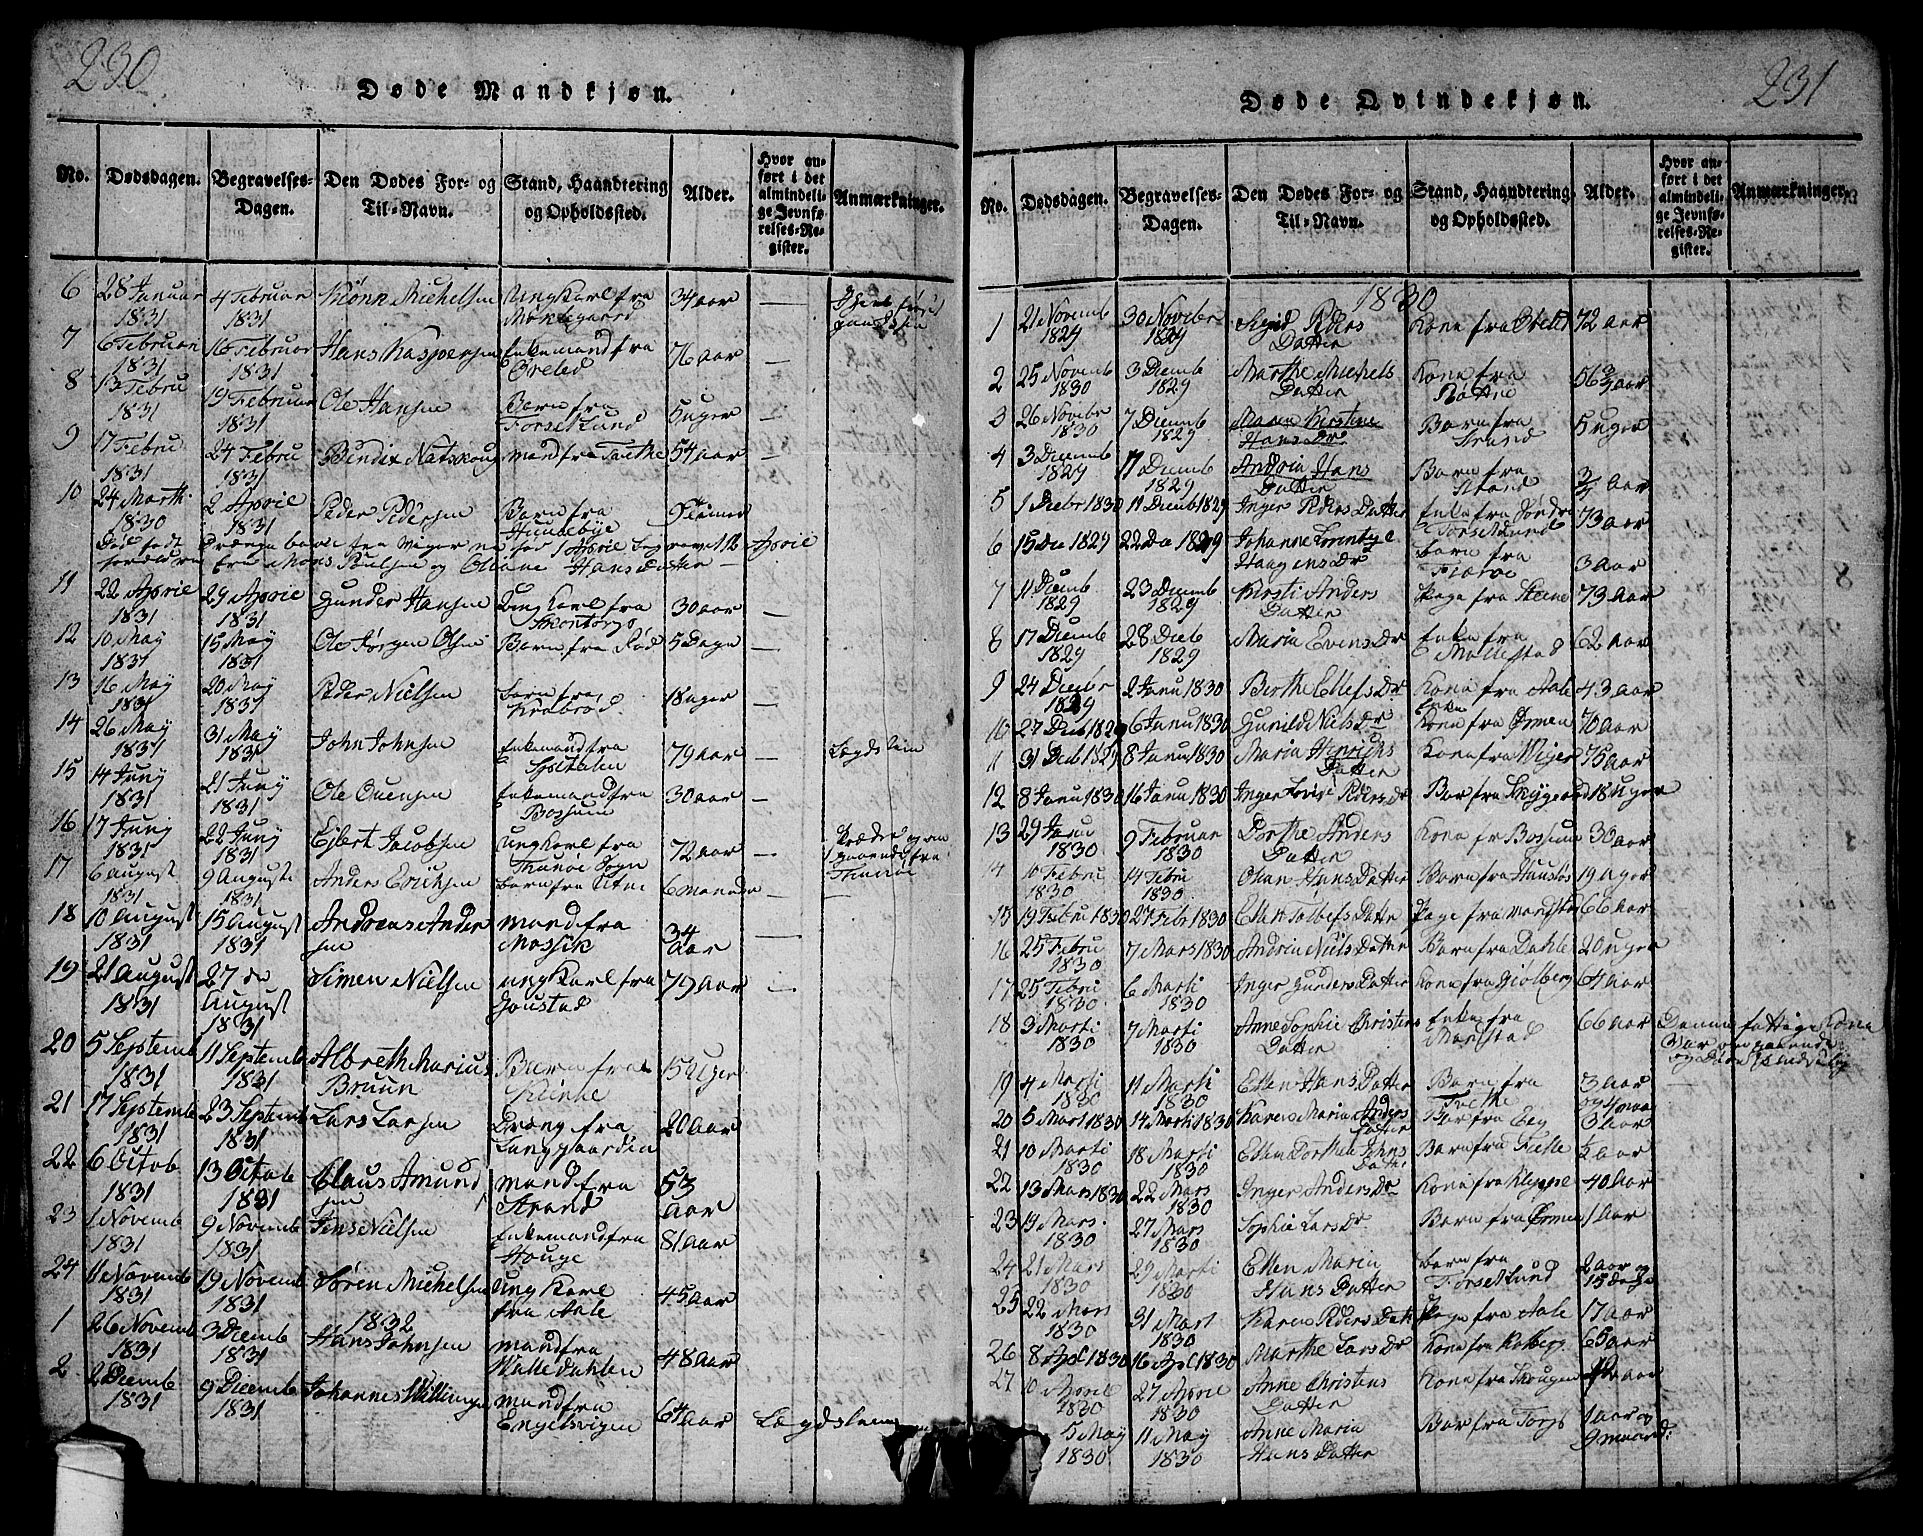 230
Døde Mandkjøn.
No.
Dødsdagen.
Begravelses-Dagen.
Den Dødes For- og Til-Navn.
Stand, Haandtering og Opholdssted.
Alder.
Hvor anført i det almindelige Jevnførelses-Register.
Anmærkninger.
6 28 Januar 1831 4 Februar 1831 Michelsen Ungkarl fra 34 aar —
7 6 Februar 1831 16 Februar 1831 Hans Kaspersen Enkemand fra Ørebed 76 aar —
8 13 Febru 1831 19 Februar 1831 Ole Hansen Barn fra Torseklund 5 uger —
9 17 Febru 1831 24 Febru 1831 Bendix Natskoug mand fra Tæthe 54 aar —
10 24 Marth. 1830 2 Aprie 1831 Peder Pedersen Barn fra Hunnebye
11 22 Aprie 1831 29 Aprie 1831 Gunder Hansen Ung Karl fra 30 aar —
12 10 May 1831 15 May 1831 Ole Jørgen Olsen Barn fra Rød 5 Dage —
13 16 May 1831 20 May 1831 Peder Nielsen barn fra Krabrød 18 uger —
14 26 May 1831 31 May 1831 John Johnsen Enkemand fra 79 aar Lægdslem
15 14 Juny 1831 21 Juny 1831 Ole Ouensen Enkemand fra Bossum 30 aar —
16 17 Juny 1831 22 Juny 1831 Ejlert Jacobsen ungkarl fra Thunøe Sogn 72 aar —
17 6 august 1831 9 Auguste 1831 Anders Erichsen barn fra Utne 6 maander —
18 10 August 1831 15 August 1831 Andreas Andersen mand fra Mossik 34 aar —
19 21 August 1831 27 de August 1831 Simen Nielsen ung Karl fra Goustad 79 aar —
20 5 Septemb 1831 11 Septemb 1831 Albreth Marius Bruun Barn fra 15 Uger
21 17 Septemb 1831 23 Septemb 1831 Lars Larsen Dreng fra Langgaarden 20 aar
22 6 Octob 1831 13 Octob 1831 Claus Amundsen mand fra Strand 53 aar
23 1 Novemb 1831 9 Novemb 1831 Jens Nielsen Enkemand fra Houge 81 aar
24 11 Novemb 1831 19 Novemb 1831 Søren Michelsen Ung Karl fra Aale 45 aar
1832
1 26 Novemb 1831 3 Diemb 1831 Hans Johnsen mand fra Walle Dahlen 48 aar
2 2 Diemb 1831 9 Dicemb 1831 Johannes mand fra Engelsvigen 64 aar Lægdslem
231
Døde Qvindekjøn.
No.
Dødsdagen.
Begravelses-Dagen.
Den Dødes For- og Til-Navn.
Stand, Haandtering og Opholdssted.
Alder.
Hvor anført i det almindelige Jevnførelses-Register.
Anmærkninger.
1830
1 21 Novemb 1829 30 Novebr 1829 Sigrid Peders Datter Kona fra 72 aar
2 25 Novemb 1830 3 Diemb 1829 Marthe Michels Datter Kona fra 56 3/4 aar
3 26 Novebr 1830 7 Diemb 1829 Maren Kerstine Hans Dr Barn fra 5 uger
4 3 Diemb 1829 17 Diemb 1829 Andria Hans Datter Barn fra Strand 3/4 aar
5 1 Diebr 1830 11 Diemb 1829 Inger Peders Datter Enke fra Søndre Torseklund 73 aar
6 15 De 1829 22 De 1829 Johanne Haagens Dr barn fra 3 aar
7 11 Diemb 1829 23 Diemb 1829 Kersti Anders Datter Pige fra Steene 73 aar
8 17 Diemb 1829 28 Dieb 1829 Maria Evens Dr Enke fra Mallestad 62 aar
9 24 Diebr 1829 2 Janu 1830 Berthe Ellefs Dr Kona fra Aale 43 aar
10 27 Deb 1829 6 Janu 1830 Gunild Niels Dr Enke Kona fra Ørmen 70 aar
11 31 Deb 1829 8 Janu 1830 Maria Henriks Datter Kona fra Wiger 75 aar
12 8 Janu 1830 16 Janu 1830 Inger Lovise Peders Dr Bar fra 18 uger
13 29 Janu 1830 9 Februar 1830 Dorthe Anders Datter Kona fr Bossum 30 aar
14 10 Febru 1830 14 Febru 1830 Olean Hans Datter Barn fra 19 uger
15 19 Febru 1830 27 Febr 1830 Ellen Tolbefs Datter Pige fra 66 aar
16 25 Febru 1830 7 Mars 1830 Andrin Niels Datter Barn fra Dahle 20 uger
17 25 Febru 1830 6 Marti 1830 Inger Gunders Datter Kona fra Giolberg 64 aar
18 3 Marti 1830 7 Marti 1830 Anne Sophie Christens Datter Enke fra 66 aar Denne fattige Kone var omgaaende
19 4 Marti 1830 11 Marti 1830 Ellen Hans Datter Barn fra Tæthe 3 aar
20 5 Mart 1830 14 Marti 1830 Karen Maria Anders Datter Bar fra Eeg 3 aar
21 10 Marti 1830 18 Marti 1830 Ellen Dorthea Johns Datter Barn fra 1/2 aar
22 13 Mars 1830 22 Mars 1830 Inger Anders Dr Kona fra Kleppe 40 aar
23 19 Mars 1830 27 Mars 1830 Sophie Lars Dr Barn fra Ørmen 1 aar
24 21 Mars 1830 29 Marti 1830 Ellen Maria Hans Datter barn fra Torseklund 2 aar og 15 Dage
25 22 Mars 1830 31 Mart 1830 Karen Peders Datt Pige fra Aale 17 aar
26 8 Apl 1830 16 Apl 1830 Marthe Lars Dr Kona fra Kolberg 65 aar
27 10 Aprie 1830 27 Aprie 1830 Anne Christens Datter Kona fra Skougen
5 May 1830 11 May 1830 Anne Maria Hans Datter Bar fra Torp 1 aar og 9 maand: